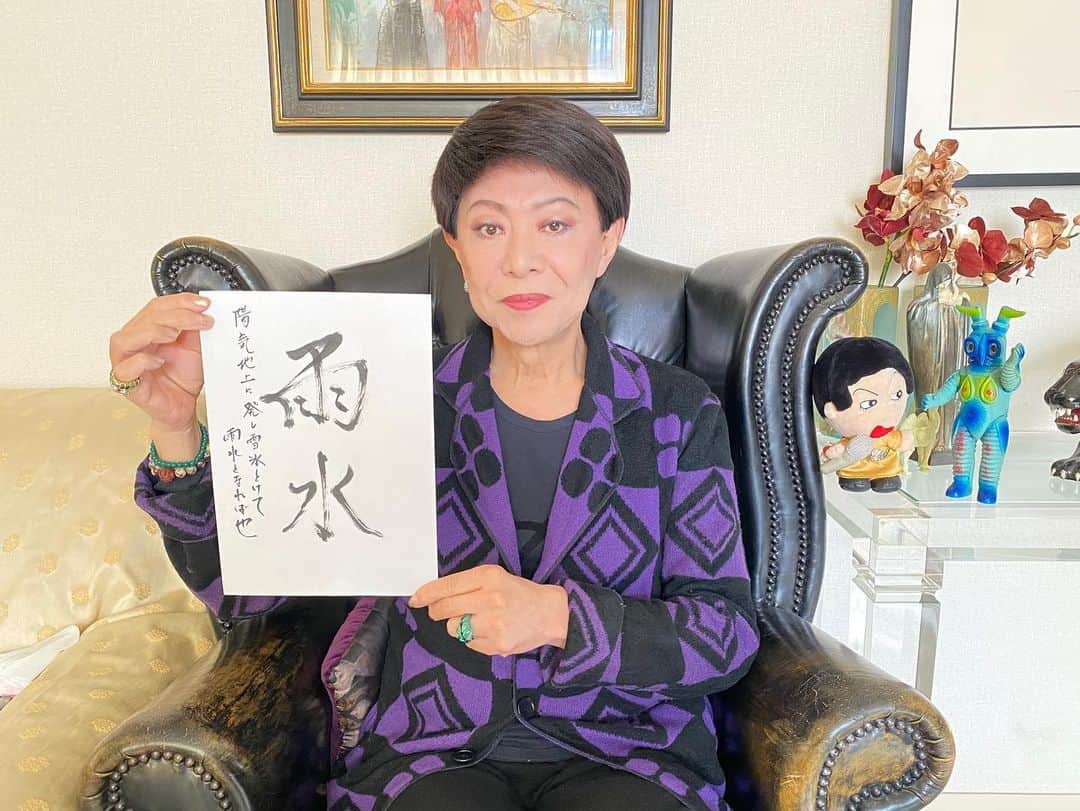 雨水
陽気地上に発し雪氷とけて
雨水となれば也